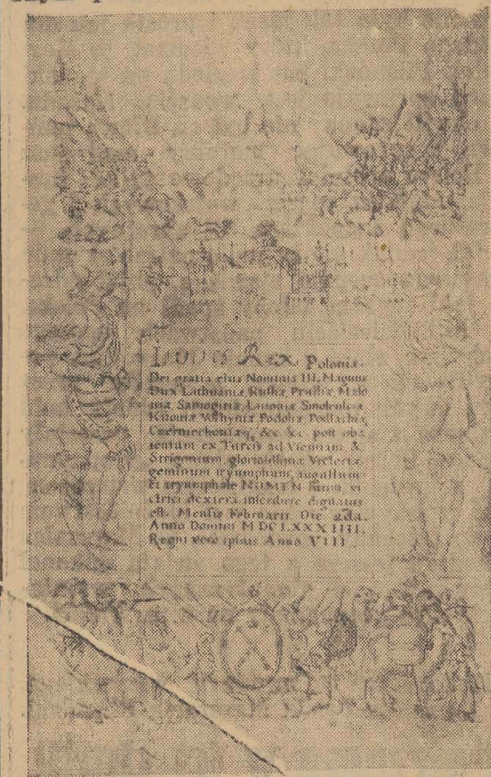 Ioannes Rex Poloniæ
Dei gratia eius Nominis III. Magnus
Dux Lithuaniæ Russiæ, Prussiæ, Maso
uiæ Samogitiæ, Liuoniæ Smolensciæ
Kiiouiæ Volhyniæ Podoliæ, Podlachiæ,
Czerniechouiæq; &c &c. post oba
tentum ex Turcis ad Viennam &
Strigonium gloriosissimæ Victoriæ
geminum tryumphum, augustum
Et tryumphale NOMEN suum vi
ctrici dexterâ inscribere dignatus
est. Mensis Februarii Die 2da.
Anno Domini MDCLXXXIIII.
Regni vero ipsius Anno VIII.